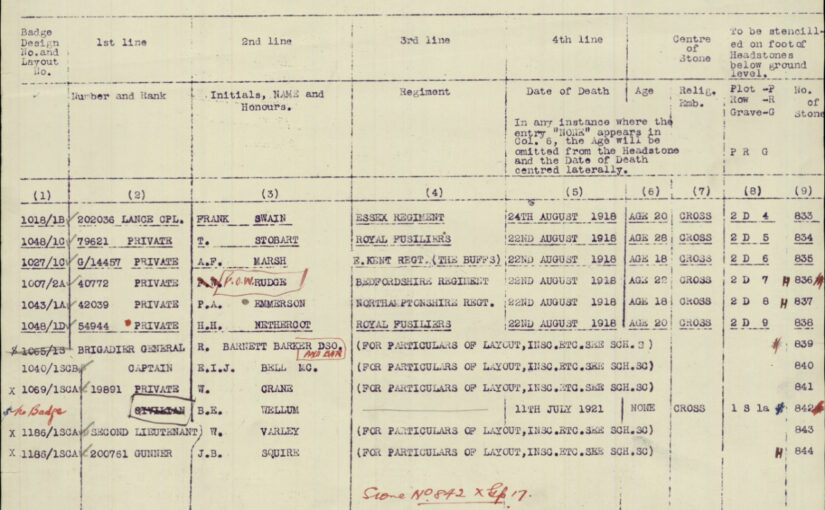 Badge Design No.and Layout No. 1st line 2nd line 3rd line 4th line Centre of Stone To be stencill-ed on foot of Headstones below ground level.
Number and Rank Initials, NAME and Honours. Regiment Date of Death Age Relig. Emb. Plot -P Row -R Grave-G No. of Stone
In any instance where the entry "NONE" appears in Col. 6, the Age will be omitted from the Headstone and the Date of Death centred laterally.
P R G
(1) (2) (3) (4) (5) (6) (7) (8) (9)
1018/1B 202036 LANCE CPL. FRANK SWAIN ESSEX REGIMENT 24TH AUGUST 1918 AGE 20 CROSS 2 D 4 833
79621 PRIVATE T. STOBART ROYAL FUSILIERS 22ND AUGUST 1918 CROSS 2 D 5 834
G/14457 PRIVATE A.F. MARSH E.KENT REGT.(THE BUFFS) 22ND AUGUST 1918 AGE 18 CROSS 2 D 6 835
1007/2A 40772 PRIVATE P.O.W. RUDGE BEDFORDSHIRE REGIMENT 22ND AUGUST 1918 CROSS 2 D 7 H 836
1043/1A 42039 PRIVATE P.A. EMMERSON NORTHAMPTONSHIRE REGT. 22ND AUGUST 1918 AGE 18 CROSS 2 D 8 H 837
1048/1D 54944 PRIVATE H.H. NETHERCOT ROYAL FUSILIERS 22ND AUGUST 1918 AGE 20 CROSS 2 D 9 838
BRIGADIER GENERAL R. BARNETT BARKER DSO. AND BAR (FOR PARTICULARS OF LAYOUT,INSC.ETC.SEE SCH.S ) 839
1040/1SCB CAPTAIN E.I.J. BELL MC. (FOR PARTICULARS OF LAYOUT,INSC.ETC.SEE SCH.SC) 840
X 1069/1SCA 19891 PRIVATE W. CRANE (FOR PARTICULARS OF LAYOUT,INSC.ETC.SEE SCH.SC) 841
No Badge CIVILIAN B.E. WELLUM 11TH JULY 1921 NONE CROSS 1 S 1a 842
X 1186/1SCA SECOND LIEUTENANT W. VARLEY (FOR PARTICULARS OF LAYOUT,INSC.ETC.SEE SCH.SC) 843
X 1186/1SCA 200761 GUNNER J.B. SQUIRE (FOR PARTICULARS OF LAYOUT,INSC.ETC.SEE SCH.SC) H 844
Stone No 842 X 17.